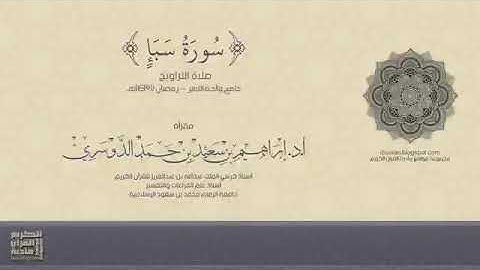 سُورَةُ سَبَإٍ
صلاة التراويح
جامع والدة الأمير – رمضان
مقرأه
أ.د. إبراهيم بن سعيد بن حمد الدوسري
أستاذ كرسي الملك عبدالله بن عبدالعزيز للقرآن الكريم
أستاذ علم القراءات والتفسير
جامعة الإمام محمد بن سعود الإسلامية
القرآن
الكريم